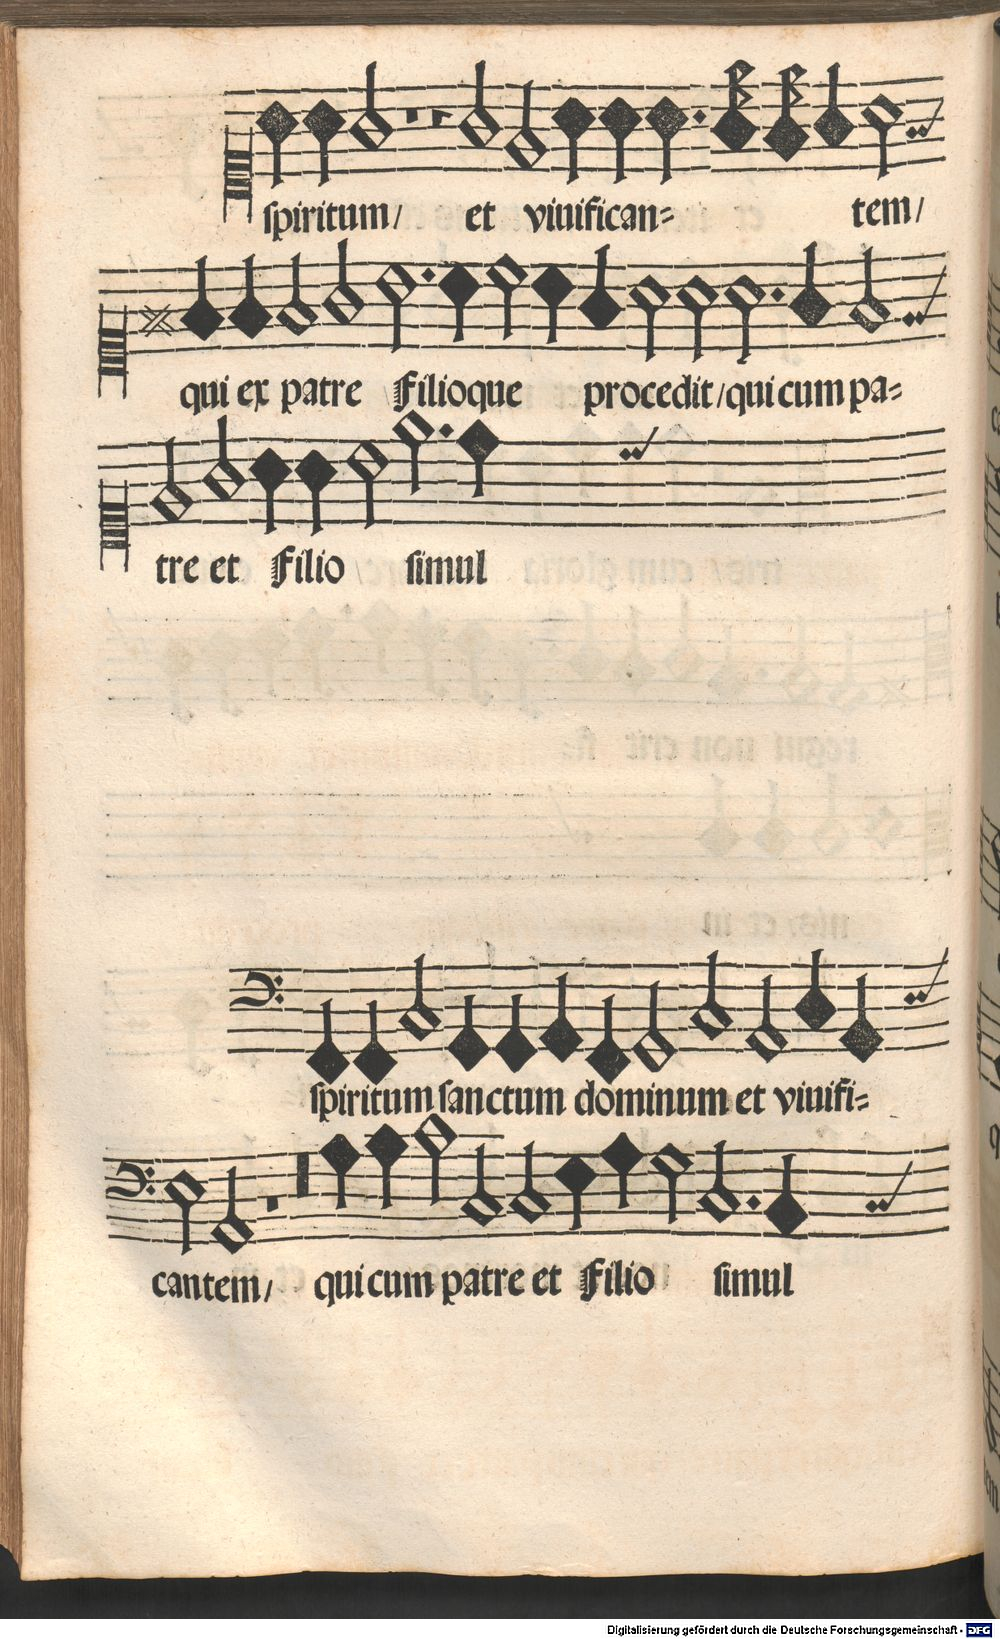 spiritum/ et viuifican= tem/
qui ex patre Filioque procedit/ qui cum pa=
tre et Filio simul
spiritum sanctum dominum et viuifi=
cantem/ qui cum patre et Filio simul
Digitalisierung gefördert durch die Deutsche Forschungsgemeinschaft - DFG